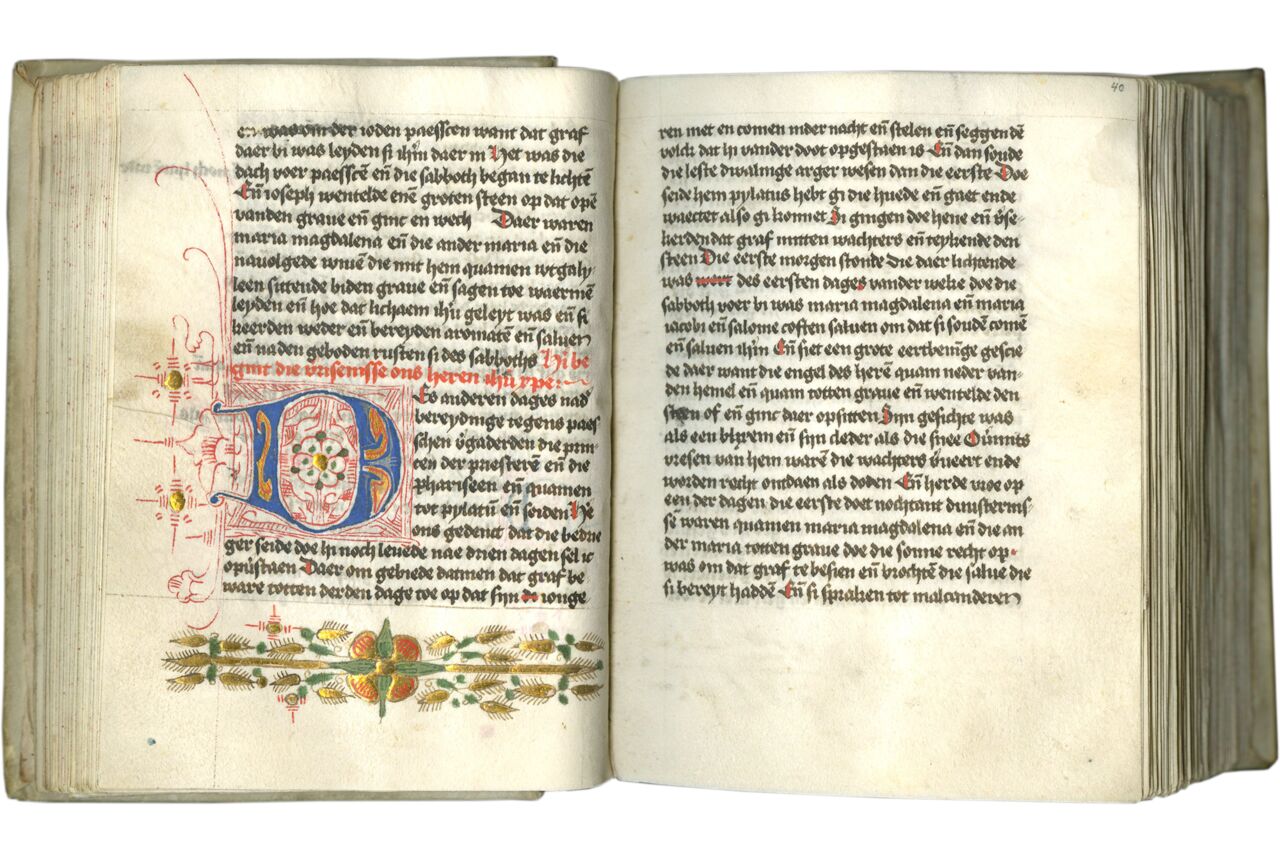 was om der ioden paesscen want dat graf
daer bi was leyden si ihm̄ daer in Het was die
dach voer paesscē en̄ die sabboth began te lichtē
En̄ ioseph wentelde enē groten steen op dat opē
vanden grave en̄ ginc en wech Daer waren
maria magdalena en̄ die ander maria en̄ die
navolgede wiuē die mit hem quamen wt galy
leen sittende biden grave en̄ sagen toe waer mē
leyden en̄ hoe dat lichaem ihū geleyt was en̄ si
keerden weder en̄ bereyden aromatē en̄ saluen
en̄ naden geboden rusten si des sabboths Hi be
gint die verisenisse ons heren ihū xpe
Des anderen dages nad
bereydinge tegens paes
schen v̄gaderden die prin
cen der priesterē en̄ die
phariseen en̄ quamen
tot pylatū en̄ seiden He
ons gedenct dat die bedrie
ger seide doe hi noch levede nae drien dagen sel ic
opūstaen Daer om gebiede datmen dat graf be
ware totten derden dage toe op dat sijn di ionge
40
ren niet en comen inder nacht en̄ stelen en̄ seggen dē
volck dat hi vander doot opgestaen is En̄ dan soude
die leste dwalinge arger wesen dan die eerste Doe
seide hem pylatus hebt gi die huede en̄ gaet ende
waectet also gi konnet Si gingen doe hene en̄ v̄se
kerden dat graf mitten wachters en̄ teykende den
steen Die eerste morgen stonde die daer lichtende
was wert des eersten dages vander weke doe die
sabboth voer bi was maria magdalena en̄ maria
iacobi en̄ salome coften saluen om dat si soudē comē
en̄ saluen ihm̄ En̄ siet een grote eertbevinge gescie
de daer want die engel des herē quam neder van
den hemel en̄ quam totten grave en̄ wentelde den
steen of en̄ ginc daer op sitten Sijn gesichte was
als een blixem en̄ sijn cleder als die snee Ouūmits
vresen van hem warē die wachters v̄veert ende
worden recht ontdaen als doden En̄ herde vroe op
een der dagen die eerste doet nochtant duusternis
sē waren quamen maria magdalena en̄ die an
der maria totten grave doe die sonne recht op
was om dat graf te besien en̄ brochtē die salue die
si bereyt haddē En̄ si spraken tot malcanderen